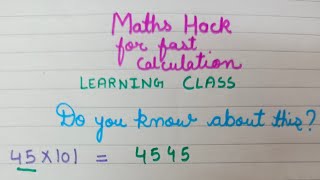 Maths Hock
for fast
Calculation
LEARNING CLASS
Do you know about this?
45 × 101 = 4545